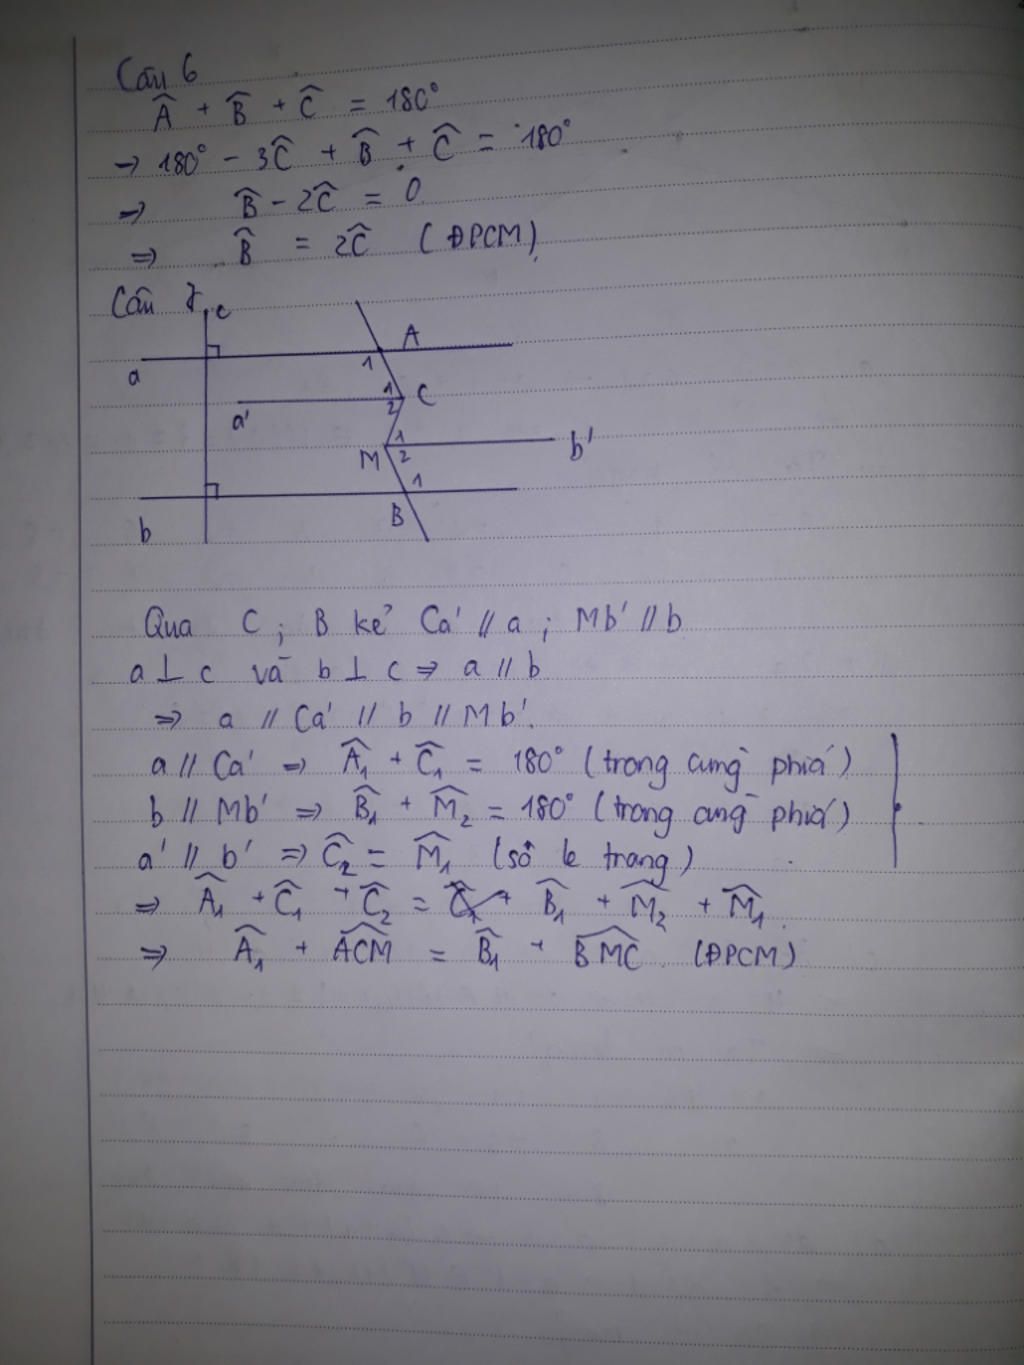 Câu 6
Â + B̂ + Ĉ = 180°
→ 180° - 3Ĉ + B̂ + Ĉ = 180°
⇒ B̂ - 2Ĉ = 0
⇒ B̂ = 2Ĉ (ĐPCM)
Câu 7
c
A
1
a
1
C
a'
2
1
b'
M
2
1
B
b
Qua C ; B kẻ Ca' // a ; Mb' // b
a ⊥ c và b ⊥ c ⇒ a // b
⇒ a // Ca' // b // Mb'.
a // Ca' ⇒ Â₁ + Ĉ₁ = 180° (trong cùng phía)
b // Mb' ⇒ B̂₁ + M̂₂ = 180° (trong cùng phía)
a' // b' ⇒ Ĉ₂ = M̂₁ (số le trong)
⇒ Â₁ + Ĉ₁ + Ĉ₂ = B̂₁ + M̂₂ + M̂₁
⇒ Â₁ + ACM = B̂₁ + BMC (ĐPCM)